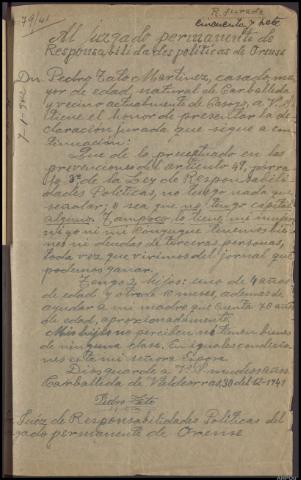 79/41
R. jurada
cincuenta y siete
Al juzgado permanente de
Responsabilidades políticas de Orense
Dn. Pedro Tato Martinez, casado, ma
yor de edad, natural de Carballeda
y vecino actualmente de Casoyo, a V.S.
tiene el honor de presentar la de
claración jurada que sigue a con
tinuación:
Que de lo preceptuado en las
prevenciones del artículo 49, párra
fo 3º de la Ley de Responsabili
dades Políticas, no tengo nada que
señalar; o sea que no tengo capital
alguno. Tampoco lo tiene mi mujer
ni yo ni mi conyuge tenemos bie
nes ni deudas de terceras personas,
toda vez que vivimos del jornal que
podemos ganar.
Tengo 2 hijos: uno de 4 años
de edad y otro de meses, además de
ayudar a mi madre que cuenta 70 años
de edad, aproximadamente.
Mis hijos no perciben ni tienen bienes
de ninguna clase. En iguales condicio
nes está mi señora Esposa.
Dios guarde a V.S. muchos años
Carballeda de Valdeorras, 30 del 12-1941
Pedro Tato
Juez de Responsabilidades Políticas del
gado permanente de Orense